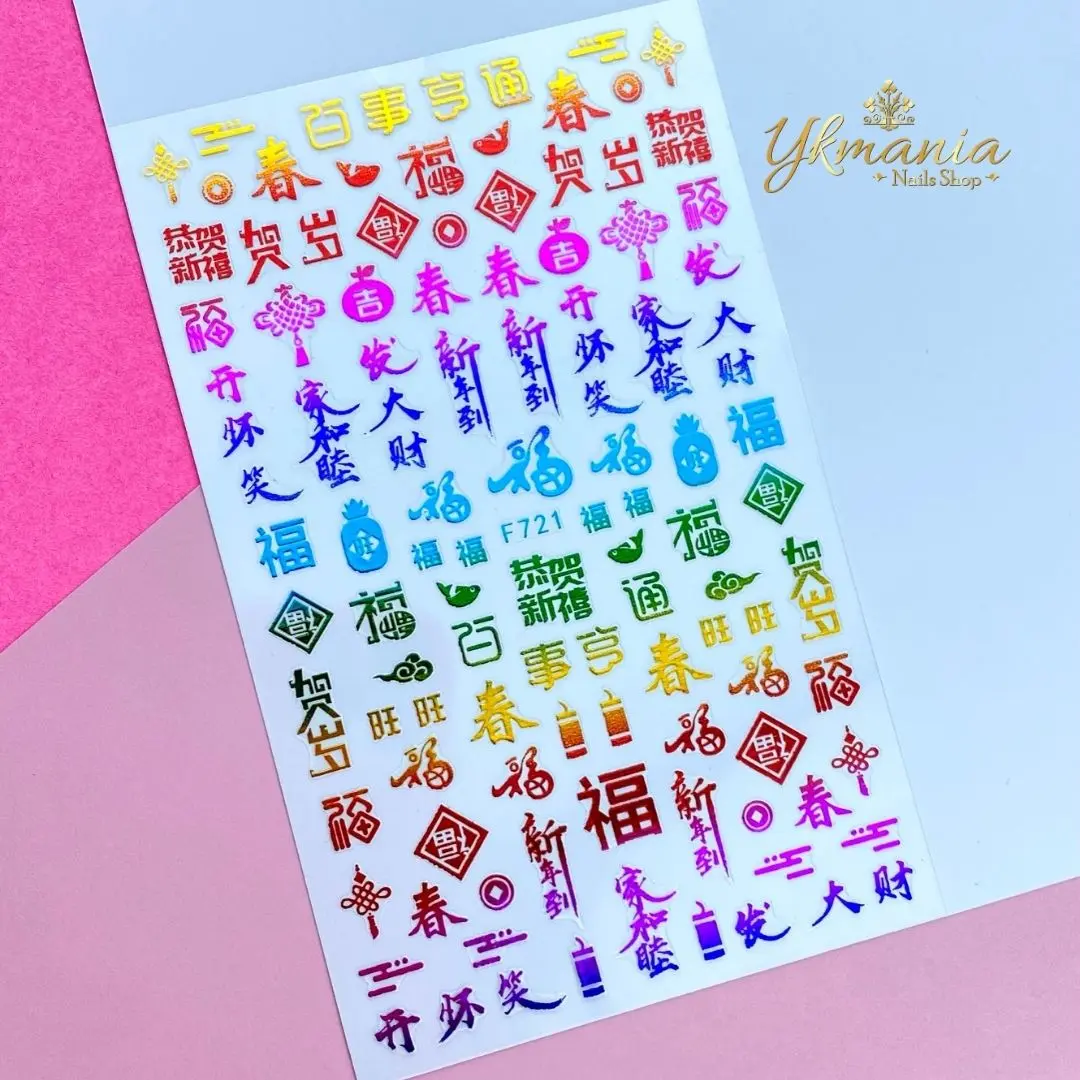 Ykmania
Nails Shop
百事亨通
春 福 春
恭贺
新禧
贺岁 福 福 贺岁
恭贺
新禧
福 吉 春 春 吉 福
开怀笑 家和睦 发大财 新年到 新年到 开怀笑 家和睦 发大财
福 旺 福 福 福 旺 福
福 福 F721 福 福
福 福
恭贺
新禧
福 福
贺岁 百事亨通 贺岁
旺旺 春 春 旺旺
福 福 福 福 福 福
福 新年到 福 新年到 福
春 春
开怀笑 家和睦 发大财